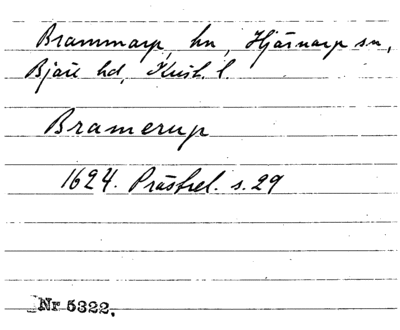 Brammarp, hn, Hjärnarp sn,
Bjäre hd, Krist. l.
Bramerup
1624. Prästrel. s. 29
Nr 5322.